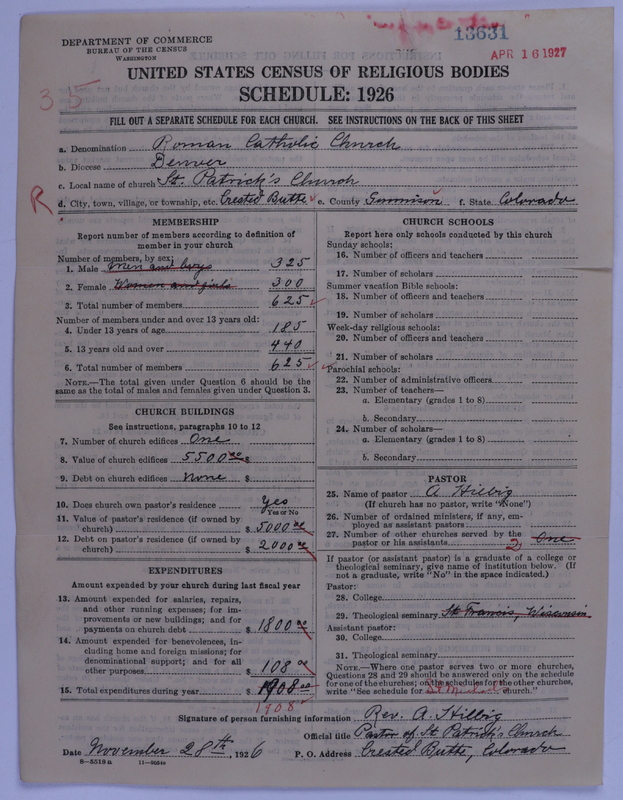 DEPARTMENT OF COMMERCE
BUREAU OF THE CENSUS
WASHINGTON
13631
APR 16 1927
35
UNITED STATES CENSUS OF RELIGIOUS BODIES
SCHEDULE: 1926
FILL OUT A SEPARATE SCHEDULE FOR EACH CHURCH. SEE INSTRUCTIONS ON THE BACK OF THIS SHEET
a. Denomination Roman Catholic Church
b. Diocese Denver
c. Local name of church St. Patrick's Church
R
d. City, town, village, or township, etc. Crested Butte e. County Gunnison f. State Colorado
MEMBERSHIP
Report number of members according to definition of
member in your church
Number of members, by sex:
1. Male Men and boys 325
2. Female Women and girls 300
3. Total number of members 625
Number of members under and over 13 years old:
4. Under 13 years of age 185
5. 13 years old and over 440
6. Total number of members 625
NOTE.—The total given under Question 6 should be the
same as the total of males and females given under Question 3.
CHURCH BUILDINGS
See instructions, paragraphs 10 to 12
7. Number of church edifices One
8. Value of church edifices 5500 00 $
9. Debt on church edifices None $
10. Does church own pastor's residence Yes
Yes or No
11. Value of pastor's residence (if owned by
church) $ 5000 00
12. Debt on pastor's residence (if owned by
church) $ 2000 00
EXPENDITURES
Amount expended by your church during last fiscal year
13. Amount expended for salaries, repairs,
and other running expenses; for im-
provements or new buildings; and for
payments on church debt $ 1800 00
14. Amount expended for benevolences, in-
cluding home and foreign missions; for
denominational support; and for all
other purposes $ 108 00
15. Total expenditures during year $ 1908 00
1908
CHURCH SCHOOLS
Report here only schools conducted by this church
Sunday schools:
16. Number of officers and teachers
17. Number of scholars
Summer vacation Bible schools:
18. Number of officers and teachers
19. Number of scholars
Week-day religious schools:
20. Number of officers and teachers
21. Number of scholars
Parochial schools:
22. Number of administrative officers
23. Number of teachers—
a. Elementary (grades 1 to 8)
b. Secondary
24. Number of scholars—
a. Elementary (grades 1 to 8)
b. Secondary
PASTOR
25. Name of pastor A Hilbig
(If church has no pastor, write "None")
26. Number of ordained ministers, if any, em-
ployed as assistant pastors
27. Number of other churches served by the
pastor or his assistants 2 One
If pastor (or assistant pastor) is a graduate of a college or
theological seminary, give name of institution below. (If
not a graduate, write "No" in the space indicated.)
Pastor:
28. College
29. Theological seminary St. Francis, Wisconsin
Assistant pastor:
30. College
31. Theological seminary
NOTE.—Where one pastor serves two or more churches,
Questions 28 and 29 should be answered only on the schedule
for one of the churches; on the schedules for the other churches,
write "See schedule for St Michael's church."
Signature of person furnishing information Rev. A. Hilbig
Official title Pastor of St Patrick's Church
Date November 28th, 1926 P. O. Address Crested Butte, Colorado